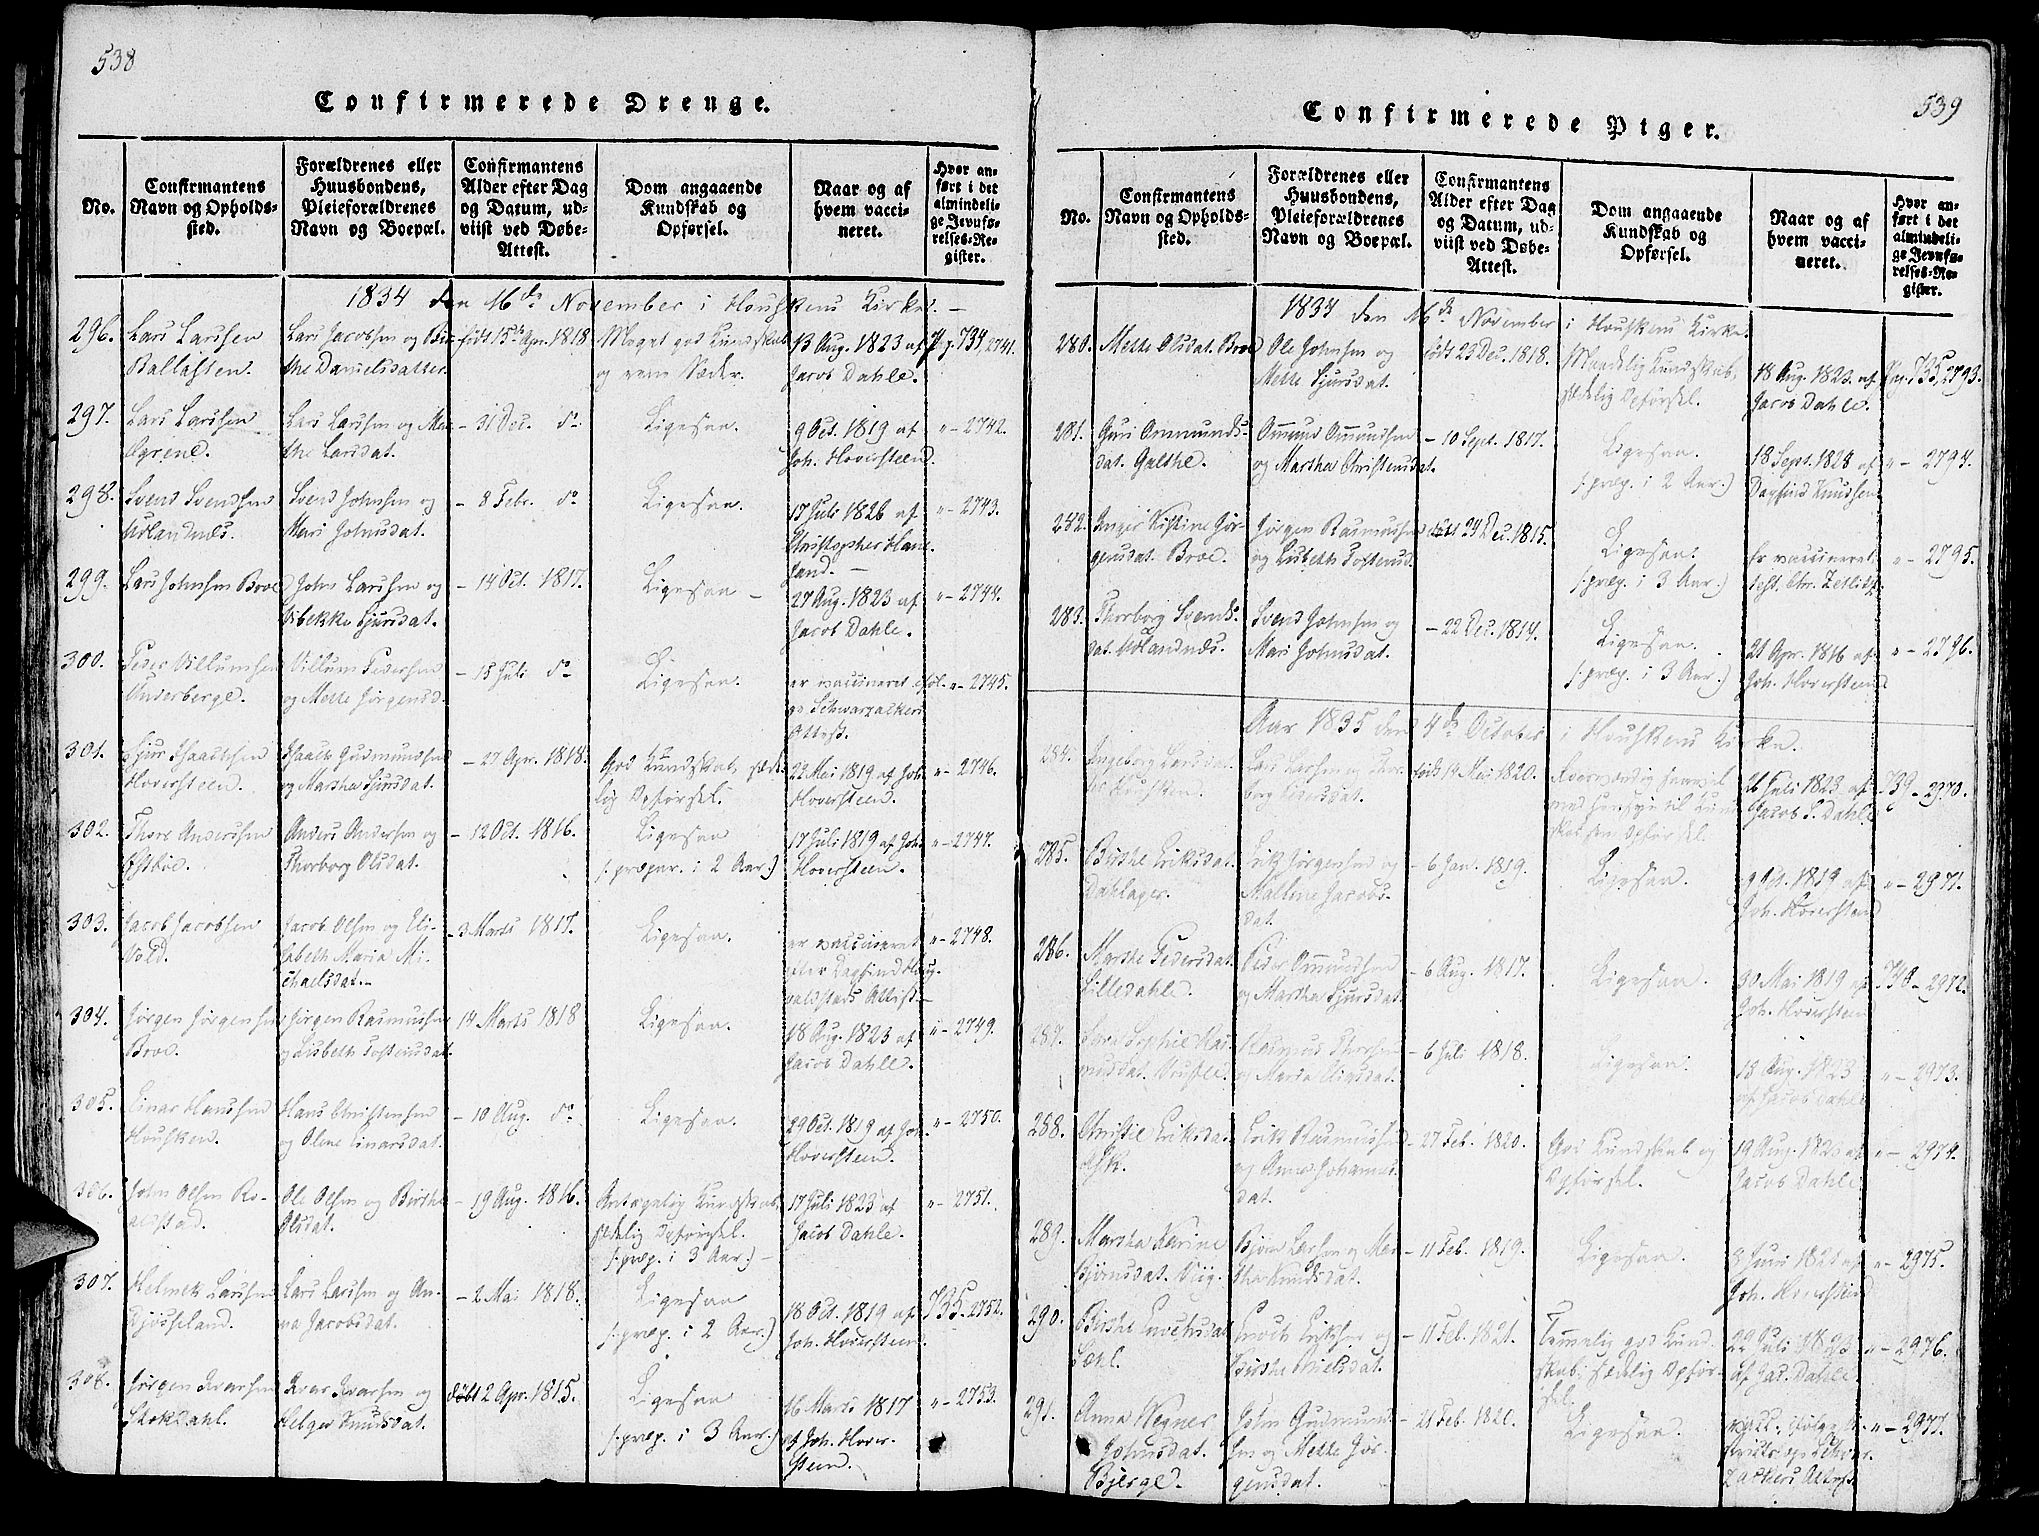 538
Confirmerede Drenge.
No.
Confirmantens
Navn og Opholds-
sted.
Forældrenes eller
Huusbondens,
Pleieforældrenes
Navn og Boepæl.
Confirmantens
Alder efter Dag
og Datum, ud-
viist ved Døbe-
Attest.
Dom angaaende
Kundskab og
Opførsel.
Naar og af
hvem vacci-
neret.
Hvor an-
ført i det
almindeli-
ge Jevnfø-
relses-Re-
gister.
1834 den 16de November i Houskens Kirke. —
296.
Lars Larssen
Ballasten.
Lars Jacobsen og Bir-
the Danielsdatter.
født 15de Apr. 1818.
Meget god Kundskab
og rene Sæder.
13 Aug. 1823 af
Jacob Dahle.
Pg. 734, 2741.
297.
Lars Larssen
Egrene.
Lars Larssen og Mar-
the Larsdat.
— 31 Dec. do
Ligesaa.
9 Oct. 1819 af
Joh. Hoversteen.
" — 2742.
298.
Svend Svendsen
Lars
Svend Johnsen og
Mari Johnsdat.
— 8 Febr. do
Ligesaa.
17 Juli 1826 af
Christopher Hane-
land. —
" — 2743.
299.
Lars Johnsen Broe
John Larssen og
Vibekke Sjursdat.
— 14 Oct. 1817.
Ligesaa —
27 Aug. 1823 af
Jacob Dahle.
" — 2744.
300.
Peder Villumsen
Underberge.
Villum Pedersen
og Mette Jørgensd.
— 18 Juli do
Ligesaa.
er vaccineret iføl-
ge Schwarzackers
Attest.
" — 2745.
301.
Sjur Isaachsen
Hoversteen.
Isaach Gudmundsen
og Martha Sjursdat.
— 27 Apr. 1818.
God Kundskab, sæde-
lig Opførsel.
22 Mai 1819 af Joh.
Hoversteen.
" — 2746.
302.
Thore Anderssen
Østbøe.
Anders Andersen og
Thorborg Olsdat.
— 12 Oct. 1816.
Ligesaa
(: præpar. i 2 Aar:)
17 Juli 1819 af Joh.
Hoversteen.
" — 2747.
303.
Jacob Jacobsen
Vold.
Jacob Olsen og Eli-
sabeth Maria Mi-
chaelsdat. —
— 3 Marts 1817.
Ligesaa.
er vaccineret
efter Dagfind Houg-
valdstads Attest —
" — 2748.
304.
Jørgen Jørgensen
Broe.
Jørgen Rasmussen
og Lisbeth Tosteinsdat.
— 14 Marts 1818
Ligesaa.
18 Aug. 1823 af
Jacob Dahle.
" — 2749.
305.
Einar Hanssen
Housken.
Hans Christensen
og Olene Einarsdat.
— 10 Aug. do
Ligesaa.
29 Oct. 1819 af Joh.
Hoversteen.
" — 2750.
306.
John Olsen Ro-
aldstad.
Ole Olsen og Birthe
Olsdat.
— 19 Aug. 1816.
Antagelig Kundskab,
sædelig Opførsel.
(: præp. i 3 Aar:) —
17 Juli 1823 af
Jacob Dahle.
" — 2751.
307.
Helmik Larssen
Gjøseland.
Lars Larssen og An-
na Jacobsdat.
— 2 Mai 1818.
Ligesaa
(: præp. i 2 Aar:)
18 Oct. 1819 af
Joh. Hoversteen.
735 — 2752.
308.
Jørgen Ivarsen
Skokdahl.
Ivar Ivarsen og
Helger Knudsdat.
døbt 2 Apr. 1815.
Ligesaa
(: præp. i 3 Aar:)
16 Marts 1817
af Joh. Hover-
steen.
" — 2753.
539
Confirmerede Piger.
No.
Confirmantens
Navn og Opholds-
sted.
Forældrenes eller
Huusbondens,
Pleieforældrenes
Navn og Boepæl.
Confirmantens
Alder efter Dag
og Datum, ud-
viist ved Døbe-
Attest.
Dom angaaende
Kundskab og
Opførsel.
Naar og af
hvem vacci-
neret.
Hvor an-
ført i det
almindeli-
ge Jevnfø-
relses-Re-
gister.
1834 den 16de November i Houskens Kirke.
280.
Mette Olsdat. Broe
Ole Johnsen og
Mette Sjursdat.
født 23 Dec. 1818.
Maadelig Kundskab,
sædelig Opførsel.
18 Aug. 1823 af
Jacob Dahle.
Pag. 735, 2793.
281.
Guri Ommunds-
dat. Galthe.
Ommund Ommundsen
og Martha Christensdat.
— 10 Sept. 1817.
Ligesaa.
(: præp. i 2 Aar:)
18 Sept. 1828 af
Dagfind Knudsen
" — 2794.
282.
Inger Kistine Jør-
gensdat. Broe.
Jørgen Rasmussen
og Lisbeth Tosteinsd.
døbt 24 Dec. 1815.
Ligesaa.
(: præp. i 3 Aar:)
er vaccineret
Chr. Zetlitz.
" — 2795.
283.
Thorborg Svends-
dat.
Svend Johnsen og
Mari Johnsdat.
— 22 Dec. 1814.
Ligesaa.
(: præp. i 3 Aar:)
21 Apr. 1816 af
Joh. Hoversteen
" — 2796.
Aar 1835 den 4de October i Houskens Kirke.
284.
Ingeborg Larsdat-
ter Housken.
Lars Larsen og Thor-
borg Pedersdat.
født 14 Mai 1820.
med Hensyn til Kund-
skab som Opførsel.
26 Juli 1823 af
Jacob S. Dahle
739 — 2970.
285.
Birthe Eriksdat.
Dahlager.
Erik Jørgensen og
Mallene Jacobs-
dat.
— 6 Jan. 1819.
Ligesaa.
9 Oct. 1819 af
Joh. Hoversteen
" — 2971.
286.
Marthe Pedersdat.
Lilledahle.
Peder Ommundsen
og Martha Sjursdat.
— 6 Aug. 1817.
Ligesaa.
30 Mai 1819 af
Joh. Hoversteen
740 — 2972.
287.
Sara Sophie Ras-
musdat.
Rasmus Thorsen
og Maria
— 6 Juli 1818.
Ligesaa.
18 Aug. 1823
af Jacob Dahle
" — 2973.
288.
Christie Eriksdat.
Ask.
Erik Rasmussen
og Anne Johannes-
dat.
— 27 Feb. 1820.
God Kundskab og
Opførsel.
19 Aug. 1823 af
Jacob Dahle.
" — 2974.
289.
Martha Karine
Bjørnsdat. Viig.
Bjørn Larsen og Mar-
tha Knudsdat.
— 11 Feb. 1819.
Ligesaa.
8 Juni 1821 af
Joh. Hoversteen
" — 2975.
290.
Birthe Enochsdat.
Sæhl.
Enoch Eriksen og
Birthe Nielsdat.
— 11 Feb. 1821.
Temmelig god Kund-
skab; sædelig Opfør-
sel.
22 Juli 1823
af Jac. Dahle.
" — 2976.
291.
Anna Wegner
Johnsdat.
Bjerge.
John Gudmund-
sen og Mette Jør-
gensdat.
— 21 Feb. 1820.
Ligesaa.
vacc. ifølge
Schwar-
zackers Attest.
" — 2977.